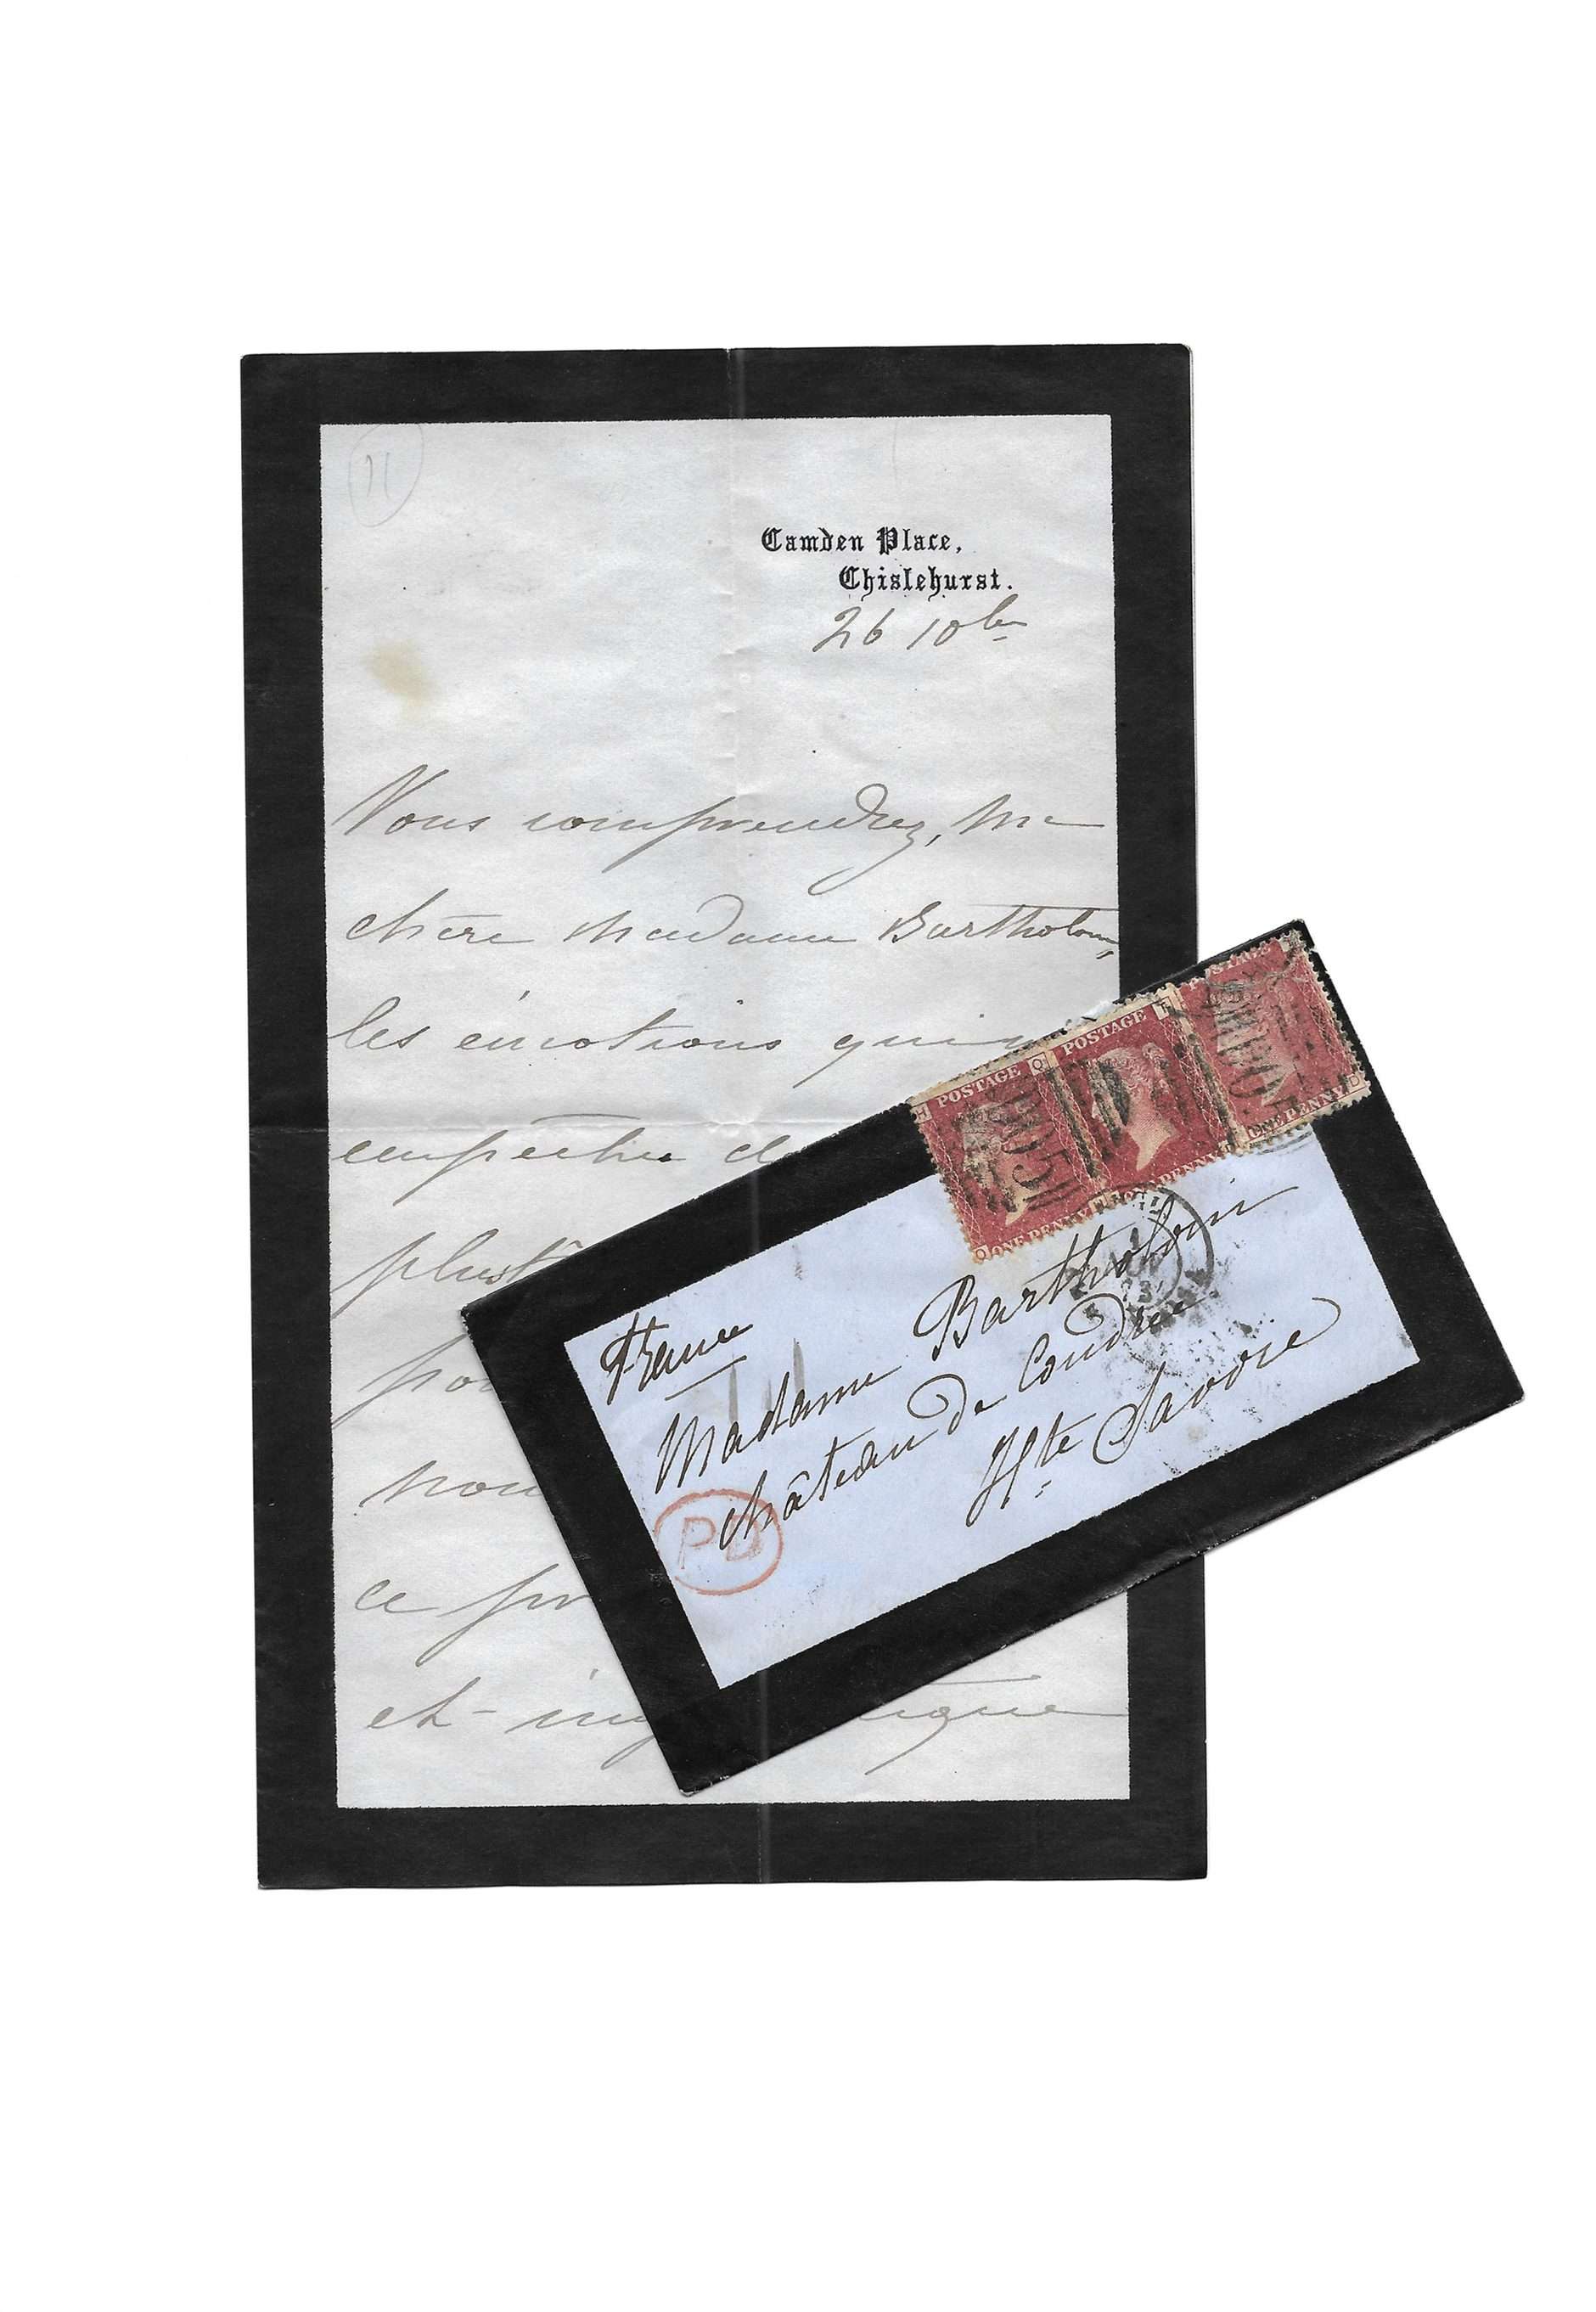 Camden Place,
Chislehurst.
26 10bre
Vous comprendrez, ma
chère Madame Bartholoni,
les émotions qui
empêchée
plustôt
nou
ce
et
POSTAGE
POSTAGE
ONE PENNY
ONE PENNY
ONE PENNY
France
Madame Bartholoni
château de Coudrée
Hte Savoie
PD